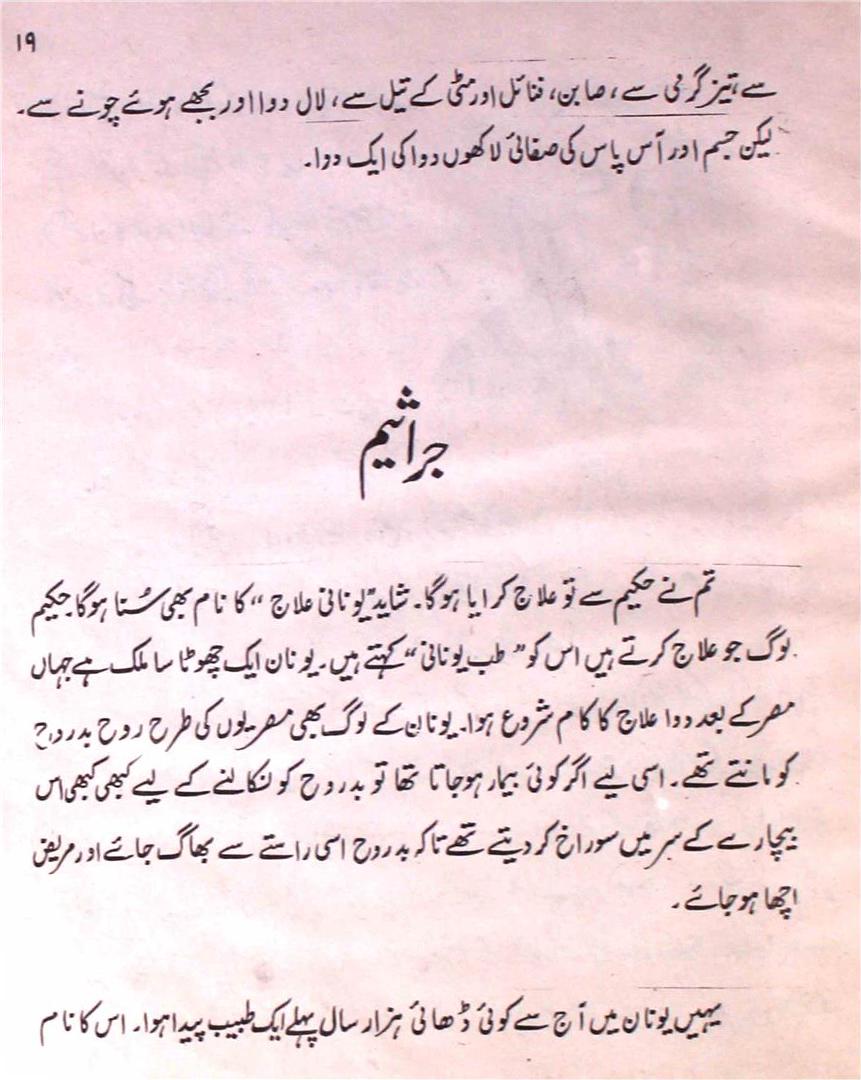 ۱۹
سے، تیز گرمی سے، صابن، فنائل اور مٹی کے تیل سے، لال دوا اور بجھے ہوئے چونے سے۔
لیکن جسم اور آس پاس کی صفائی لاکھوں دوا کی ایک دوا۔
جراثیم
تم نے حکیم سے تو علاج کرایا ہوگا۔ شاید "یونانی علاج" کا نام بھی سُنا ہوگا۔ حکیم
لوگ جو علاج کرتے ہیں اس کو "طب یونانی" کہتے ہیں۔ یونان ایک چھوٹا سا ملک ہے جہاں
مصر کے بعد دوا علاج کا کام شروع ہوا۔ یونان کے لوگ بھی مصریوں کی طرح روح بدروح
کو مانتے تھے۔ اسی لیے اگر کوئی بیمار ہوجاتا تھا تو بدروح کو نکالنے کے لیے کبھی کبھی اس
بیچارے کے سر میں سوراخ کر دیتے تھے تاکہ بدروح اسی راستے سے بھاگ جائے اور مریض
اچھا ہوجائے۔
یہیں یونان میں آج سے کوئی ڈھائی ہزار سال پہلے ایک طبیب پیدا ہوا۔ اس کا نام